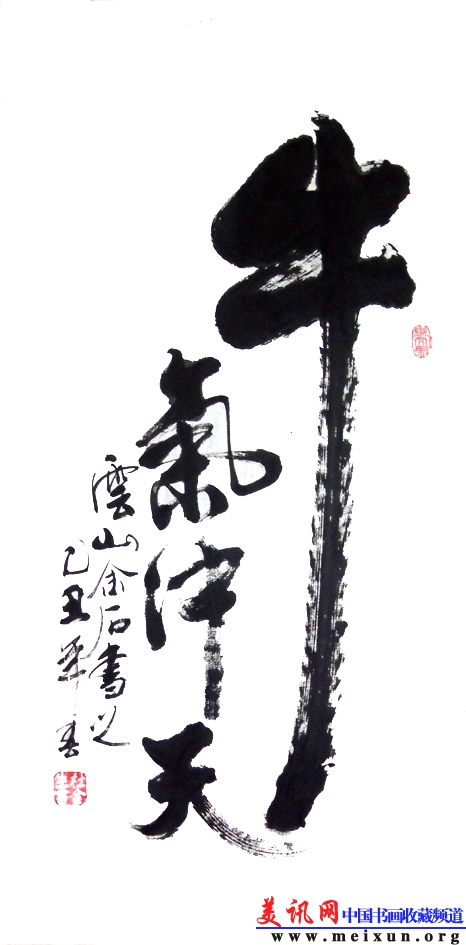 牛
氣沖天
雲山余石書之
己丑年春
美讯网中国书画收藏频道
www.meixun.org